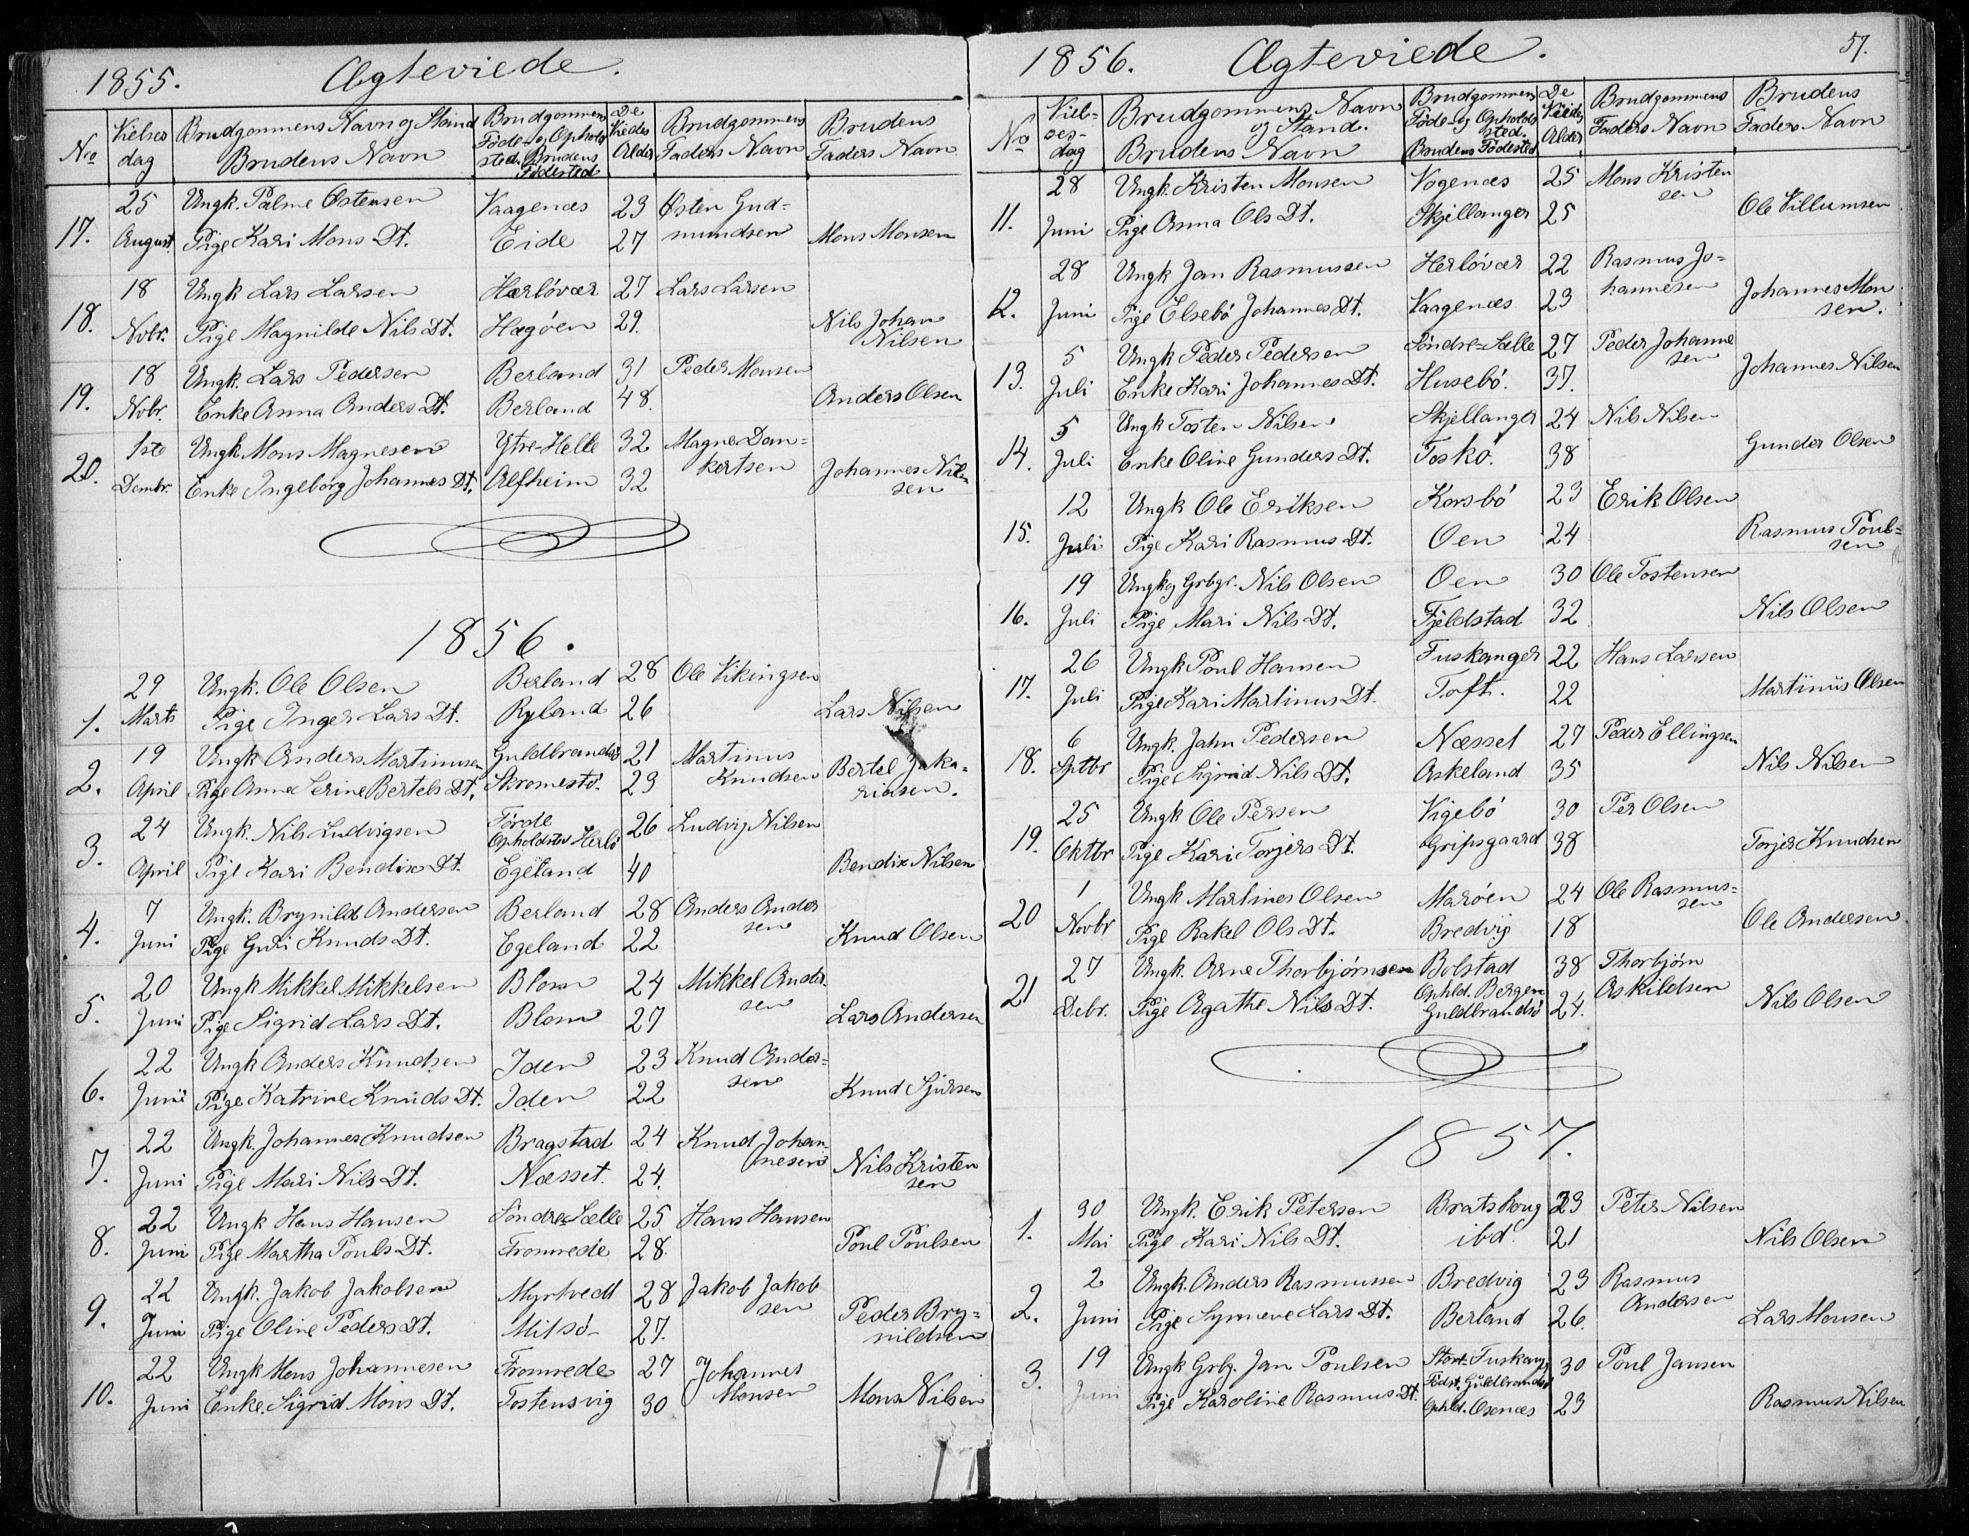 1855. Ægteviede.
No Vielses dag Brudgommens Navn og Stand Brudens Navn Brudgommens Føde- og Opholds sted. Brudens Fødested De Viedes Alder Brudgommens Faders Navn Brudens Faders Navn
25 Ungk. Palme Østensen Vaagenæs 23 Østen Gud=
17. August Pige Kari Mons Dt. Eide 27 mundsen Mons Monsen
18 Ungk Lars Larsen Herløvær 27 Lars Larsen
18. Novbr. Pige Magnilde Nils Dt. Hægøen 29. Nils Johan
Nilsen
18 Ungk. Lars Pedersen Berland 31 Peder Monsen
19. Novbr. Enke Anna Anders Dt. Berland 48. Anders Olsen
1ste Ungk. Mons Magnesen Ytre-Helle 32 Magne Dan=
20. Decmbr. Enke Ingeborg Johannes Dt. Alfheim 32 kertsen Johannes Nil=
sen
1856.
29 Ungk. Ole Olsen Berland 28 Ole Vikingsen
1. Marts Pige Inger Lars Dt. Ryland 26 Lars Nilsen
19 Ungk Anders Martinusen Guldbrandsø 21 Martinus
2. April Pige Anne Serine Bertels Dt. Skromesø. 23 Knudsen Bertel Zaka=
riasen.
24 Ungk. Nils Ludvigsen Førde 26 Ludvig Nilsen
Opholdster Herlø
3. April Pige Kari Bendix Dt. Egeland 40 Bendix Nilsen
7 Ungk. Brynild Andersen Berland 28 Anders Ander
4. Juni Pige Guri Knuds Dt. Egeland 22 sen Knud Olsen
20 Ungk Mikkel Mikkelsen Blom 24 Mikkel Ander
5. Juni Pige Sigrid Lars Dt. Blom 27 sen Lars Andersen
22 Ungk Anders Knudsen Iden 23 Knud Ander=
6. Juni Pige Katrine Knuds Dt. Iden 22 sen Knud Sjursen
22 Ungk. Johannes Knudsen Bragstad 24 Knud Johan
7. Juni Pige Mari Nils Dt. Næsset. 24. nesen Nils Kristen
sen
22 Ungk Hans Hansen Søndre-Sælle 25 Hans Hansen
8. Juni Pige Martha Pouls Dt. Fromrede 28. Poul Poulsen
22 Ungk. Jakob Jakobsen Myrtvedt 28 Jakob Jakob
9. Juni Pige Oline Peders Dt. Milsø 27. sen Peder Bry=
nildsen
22 Ungk Mons Johannesen Fromrede 27 Johannes
10. Juni Enke. Sigrid Mons Dt. Tostensvig 30 Monsen Mons Nilsen
1856. Ægteviede. 57.
No Viel- ses- dag Brudgommens Navn og Stand. Brudens Navn Brudgommens Føde- og Opholds sted. Brudens Fødested De Viedes Alder Brudgommens Faders Navn Brudens Faders Navn
28 Ungk. Kristen Monsen Vogenæs 25 Mons Kristen
sen
11. Juni Pige Anna Ols Dt. Skjellanger 25 Ole Villumsen
28 Ungk Jan Rasmussen Herløvær 22 Rasmus Jo-
12. Juni Pige Elsebø Johannes Dt. Vaagenæs 23 hannesen Johannes Mon
sen.
5 Ungk Peder Pedersen Søndre-Sælle 27 Peder Johanne
sen
13. Juli Enke Kari Johannes Dt. Husebø. 37. Johannes Nilsen
5 Ungk Tosten Nilsen Skjellanger 24 Nils Nilsen
14. Juli Enke Oline Gunders Dt. Toskø. 38 Gunder Olsen
12 Ungk Ole Eriksen Korsbø 23 Erik Olsen
15. Juli Pige Kari Rasmus Dt. Oen 24 Rasmus Poul=
sen
19 Ungk og Grbgr. Nils Olsen Oen 30 Ole Tostensen
16. Juli Pige Mari Nils Dt. Fjeldstad 32 Nils Olsen
26 Ungk Poul Hansen Fuskanger 22 Hans Larsen
17. Juli Pige Kari Martinus Dt. Toft. 22 Martinus Olsen
6 Ungk. Jahn Pedersen Næsset 27 Peder Ellingsen
18. Sptbr Pige Sigrid Nils Dt. Askeland 35 Nils Nilsen
25 Ungk Ole Persen Vigebø 30 Per Olsen
19. Oktbr Pige Kari Torjers Dt. Gripsgaard 38 Torjer Knudsen
1 Ungk Martines Olsen Marøen 24 Ole Rasmus=
sen
20 Novbr Pige Rakel Ols Dt. Bredvig 18 Ole Andersen
27 Ungk. Arne Thorbjørnsen Bolstad 38 Thorbjørn
Ophld. Bergen
21 Debr. Pige Agathe Nils Dt. Guldbrandsø 24. Askildsen Nils Olsen
1857.
30 Ungk. Erik Petersen Bratskoug 23 Peter Nilsen
1. Mai Pige Kari Nils Dt. ibd. 21 Nils Olsen
2 Ungk. Anders Rasmussen Bredvig 23 Rasmus
2. Juni Pige Synneve Lars Dt. Berland 26. Andersen Lars Monsen
19 Ungk Grbg. Jan Poulsen Store-Fuskang 30 Poul Jansen
Fødst. Guldbrandsø
3. Juni Pige Karoline Rasmus Dt. Ophld. Osenæs 23 Rasmus Nilsen